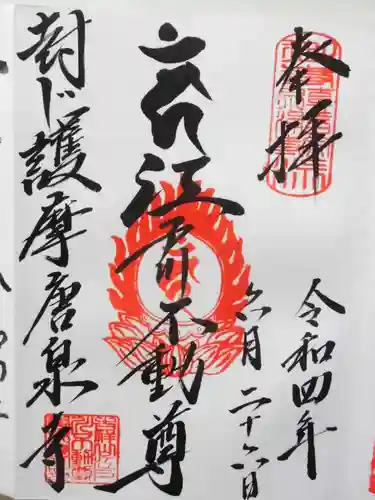 奉拝
令和四年
六月二十六日
江戸川不動尊
封じ護摩唐泉寺